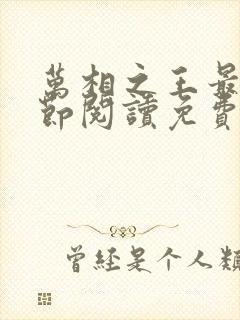 萬相之王最
節閱讀免費
曾經是个人類